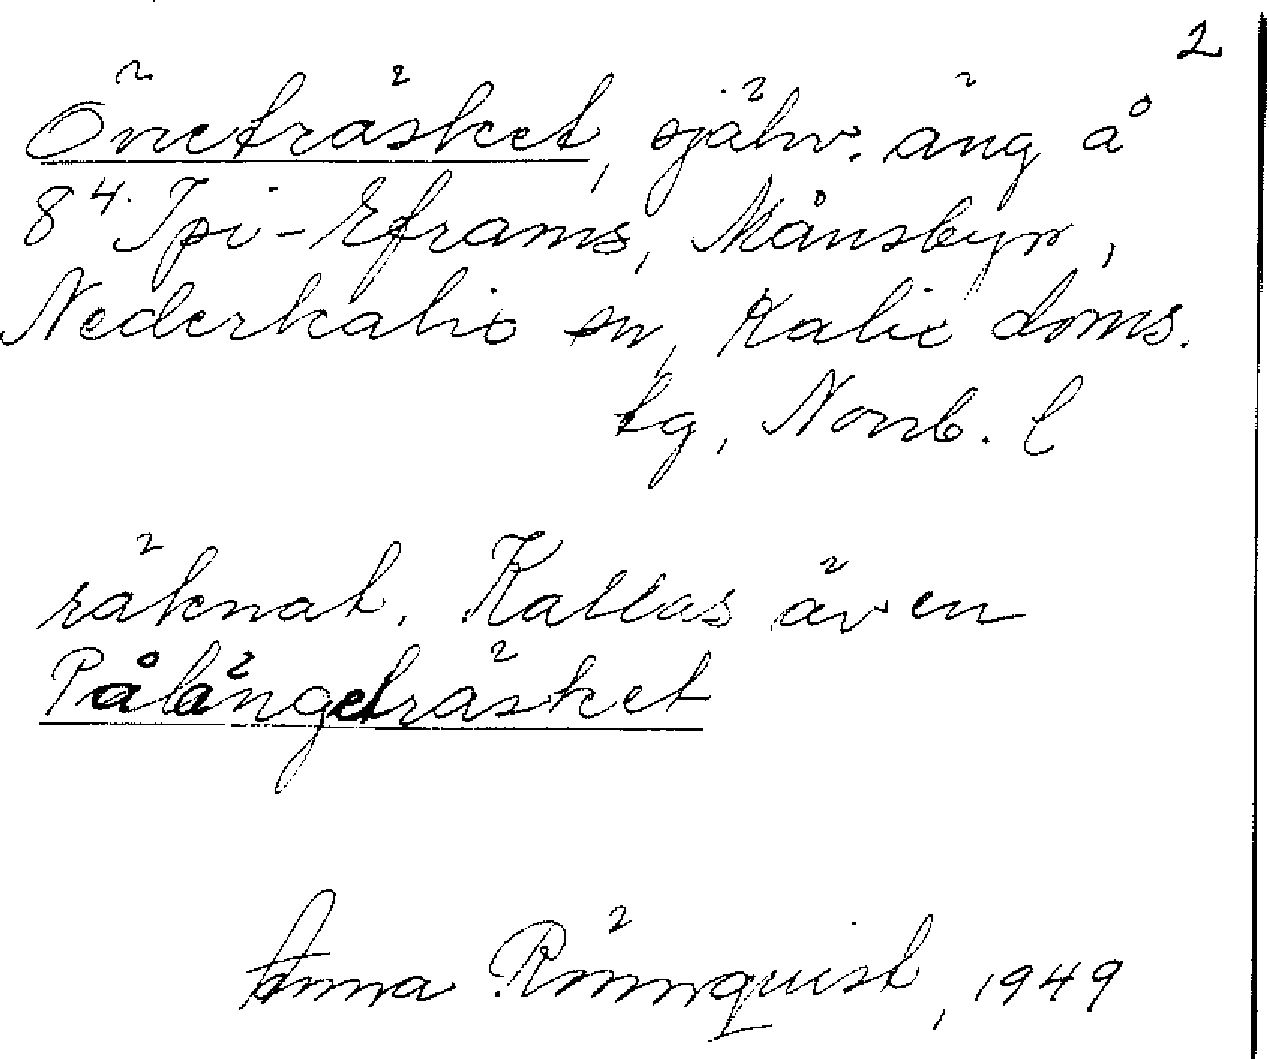 2
Öreträsket, självr. äng å
8⁴. Ipi-Eframs, Månsbyn,
Nederkalix sn, Kalix doms.
tg, Norrb. l
räknat. Kallas även
Pålängeträsket
Anna Rönnquist, 1949